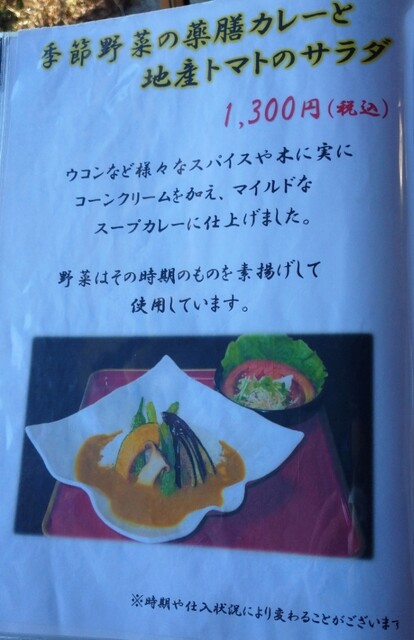 季節野菜の薬膳カレーと
地産トマトのサラダ
1,300円(税込)
ウコンなど様々なスパイスや木に実に
コーンクリームを加え、マイルドな
スープカレーに仕上げました。
野菜はその時期のものを素揚げして
使用しています。
※時期や仕入状況により変わることがいます